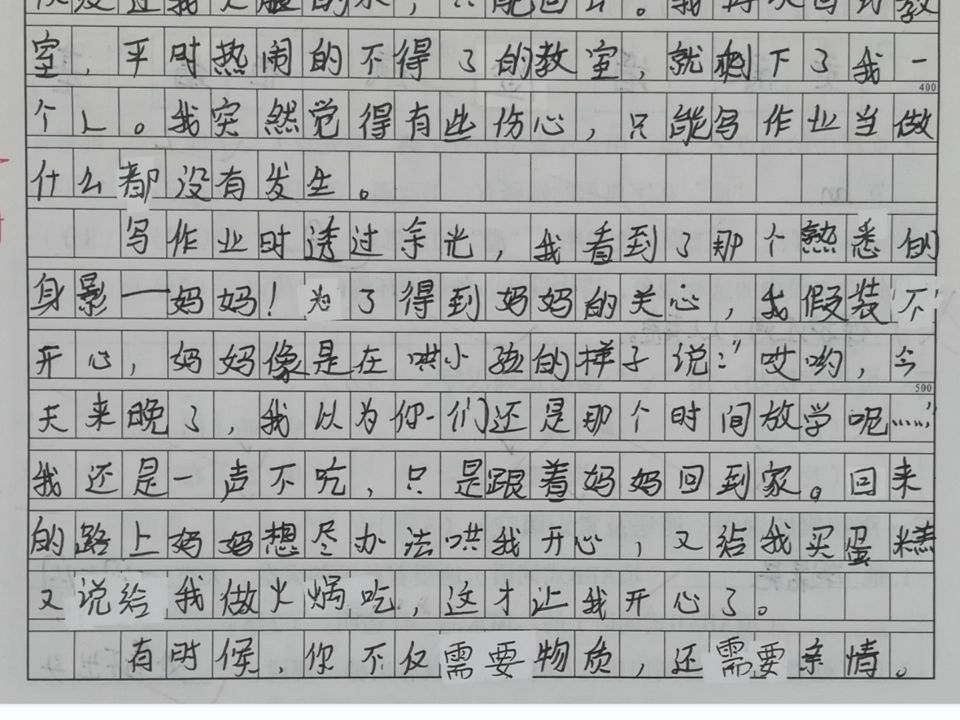 室，平时热闹的不得了的教室，就剩下了我一
400
个人。我突然觉得有些伤心，只能写作业当做
什么都没有发生。
写作业时透过余光，我看到了那个熟悉的
身影一妈妈！为了得到妈妈的关心，我假装不
开心，妈妈像是在哄小孩的样子说：“哎哟，今
500
天来晚了，我以为你们还是那个时间放学呢……”
我还是一声不吃，只是跟着妈妈回到家。回来
的路上妈妈想尽办法哄我开心，又给我买蛋糕
又说给我做火锅吃，这才让我开心了。
有时候，你不仅需要物质，还需要亲情。